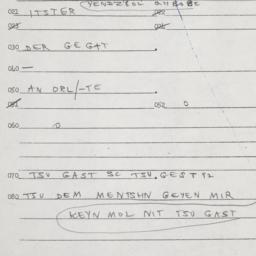 022 ITSTER 022
023 024
030 DER GEGAT .
040 —
050 AN ORL/-TE .
051 052 0
060 0
070 TSU GAST SC TSU.GEST 72
080 TSU DEM MENTSHN GEYEN MIR
KEYN MOL NIT TSU GAST